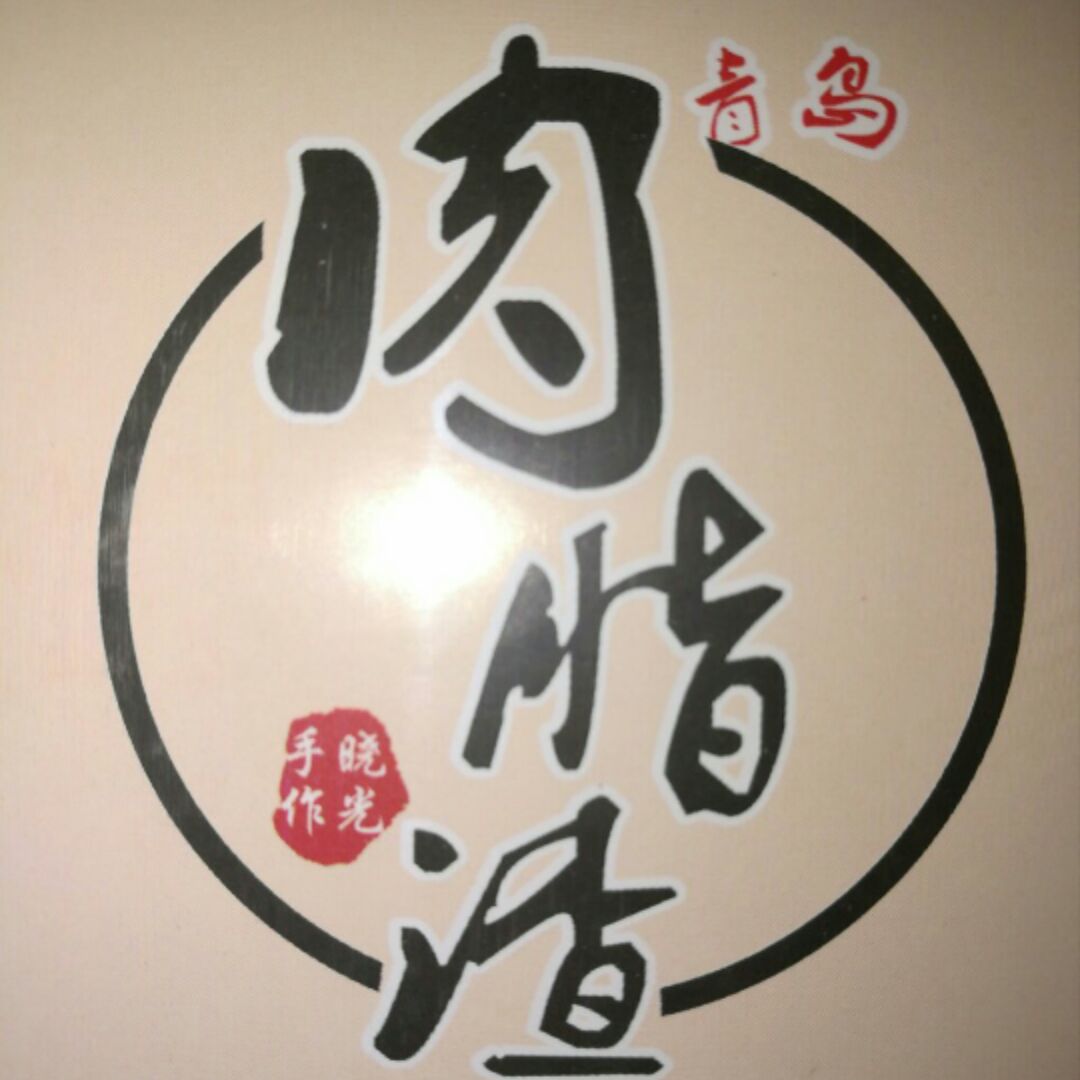 青岛
肉脂渣
晓光
手作